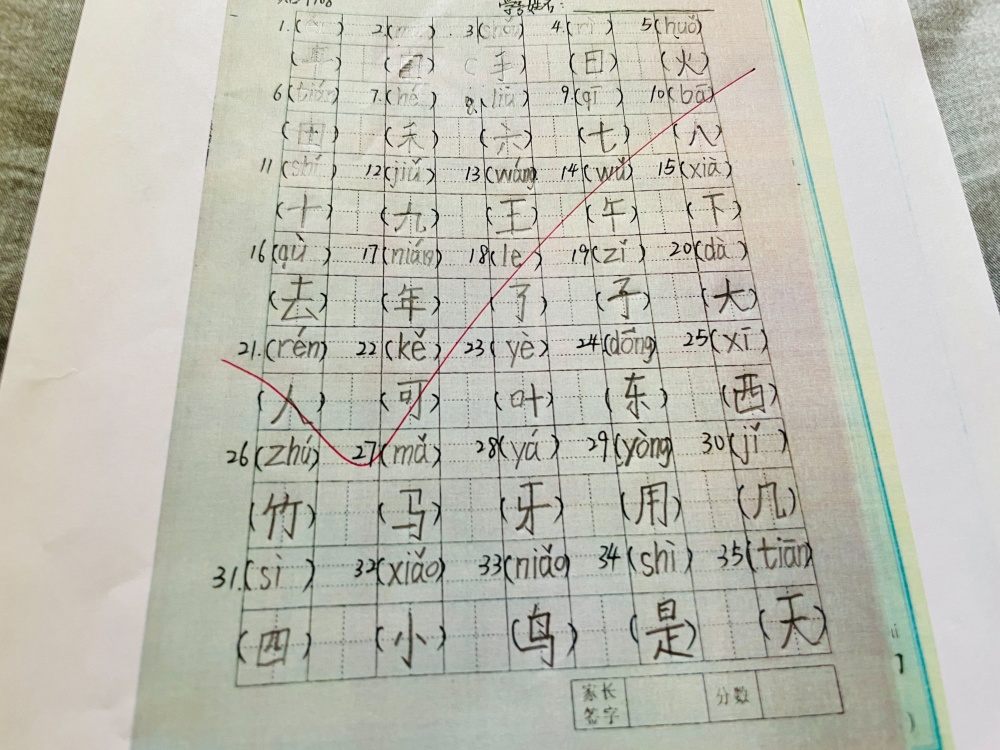 学生姓名:
1.( ) 2.( ) 3(shǒu) 4.(rì) 5(huǒ)
( ) ( ) (手) (日) (火)
6(tián) 7.(hé) 8.(liù) 9.(qī) 10(bā)
(田) (禾) (六) (七) (八)
11(shí) 12(jiǔ) 13(wáng) 14(wǔ) 15(xià)
(十) (九) (王) (午) (下)
16(qù) 17(nián) 18(le) 19(zǐ) 20(dà)
(去) (年) (了) (子) (大)
21.(rén) 22(kě) 23(yè) 24(dōng) 25(xī)
(人) (可) (叶) (东) (西)
26(zhú) 27(mǎ) 28(yá) 29(yòng) 30(jǐ)
(竹) (马) (牙) (用) (几)
31.(sì) 32(xiǎo) 33(niǎo) 34(shì) 35(tiān)
(四) (小) (鸟) (是) (天)
家长签字 分数